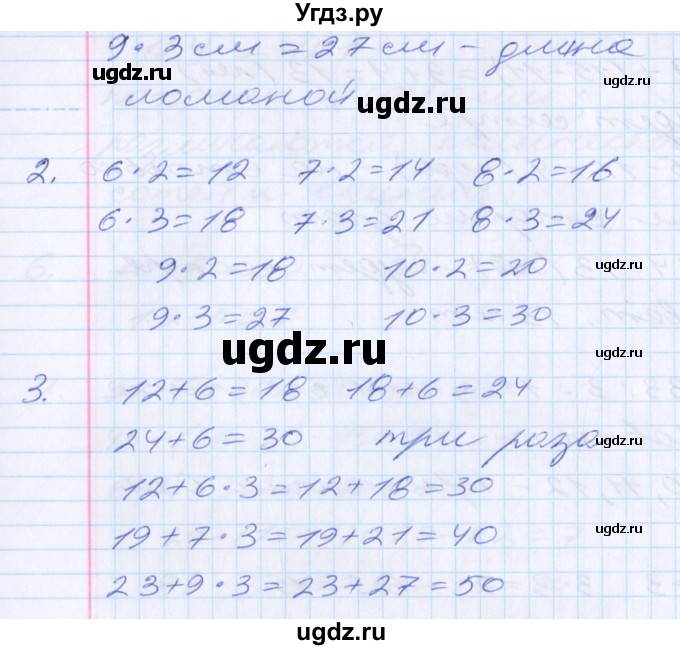 Угдз.ру
9·3см = 27см - длина
ломаной
2. 6·2=12 7·2=14 8·2=16
6·3=18 7·3=21 8·3=24
9·2=18 10·2=20
9·3=27 10·3=30
3. 12+6=18 18+6=24
24+6=30 три раза
12+6·3=12+18=30
19+7·3=19+21=40
23+9·3=23+27=50
ugdz.ru
ugdz.ru
ugdz.ru
ugdz.ru
ugdz.ru
ugdz.ru
ugdz.ru
ugdz.ru
ugdz.ru
ugdz.ru